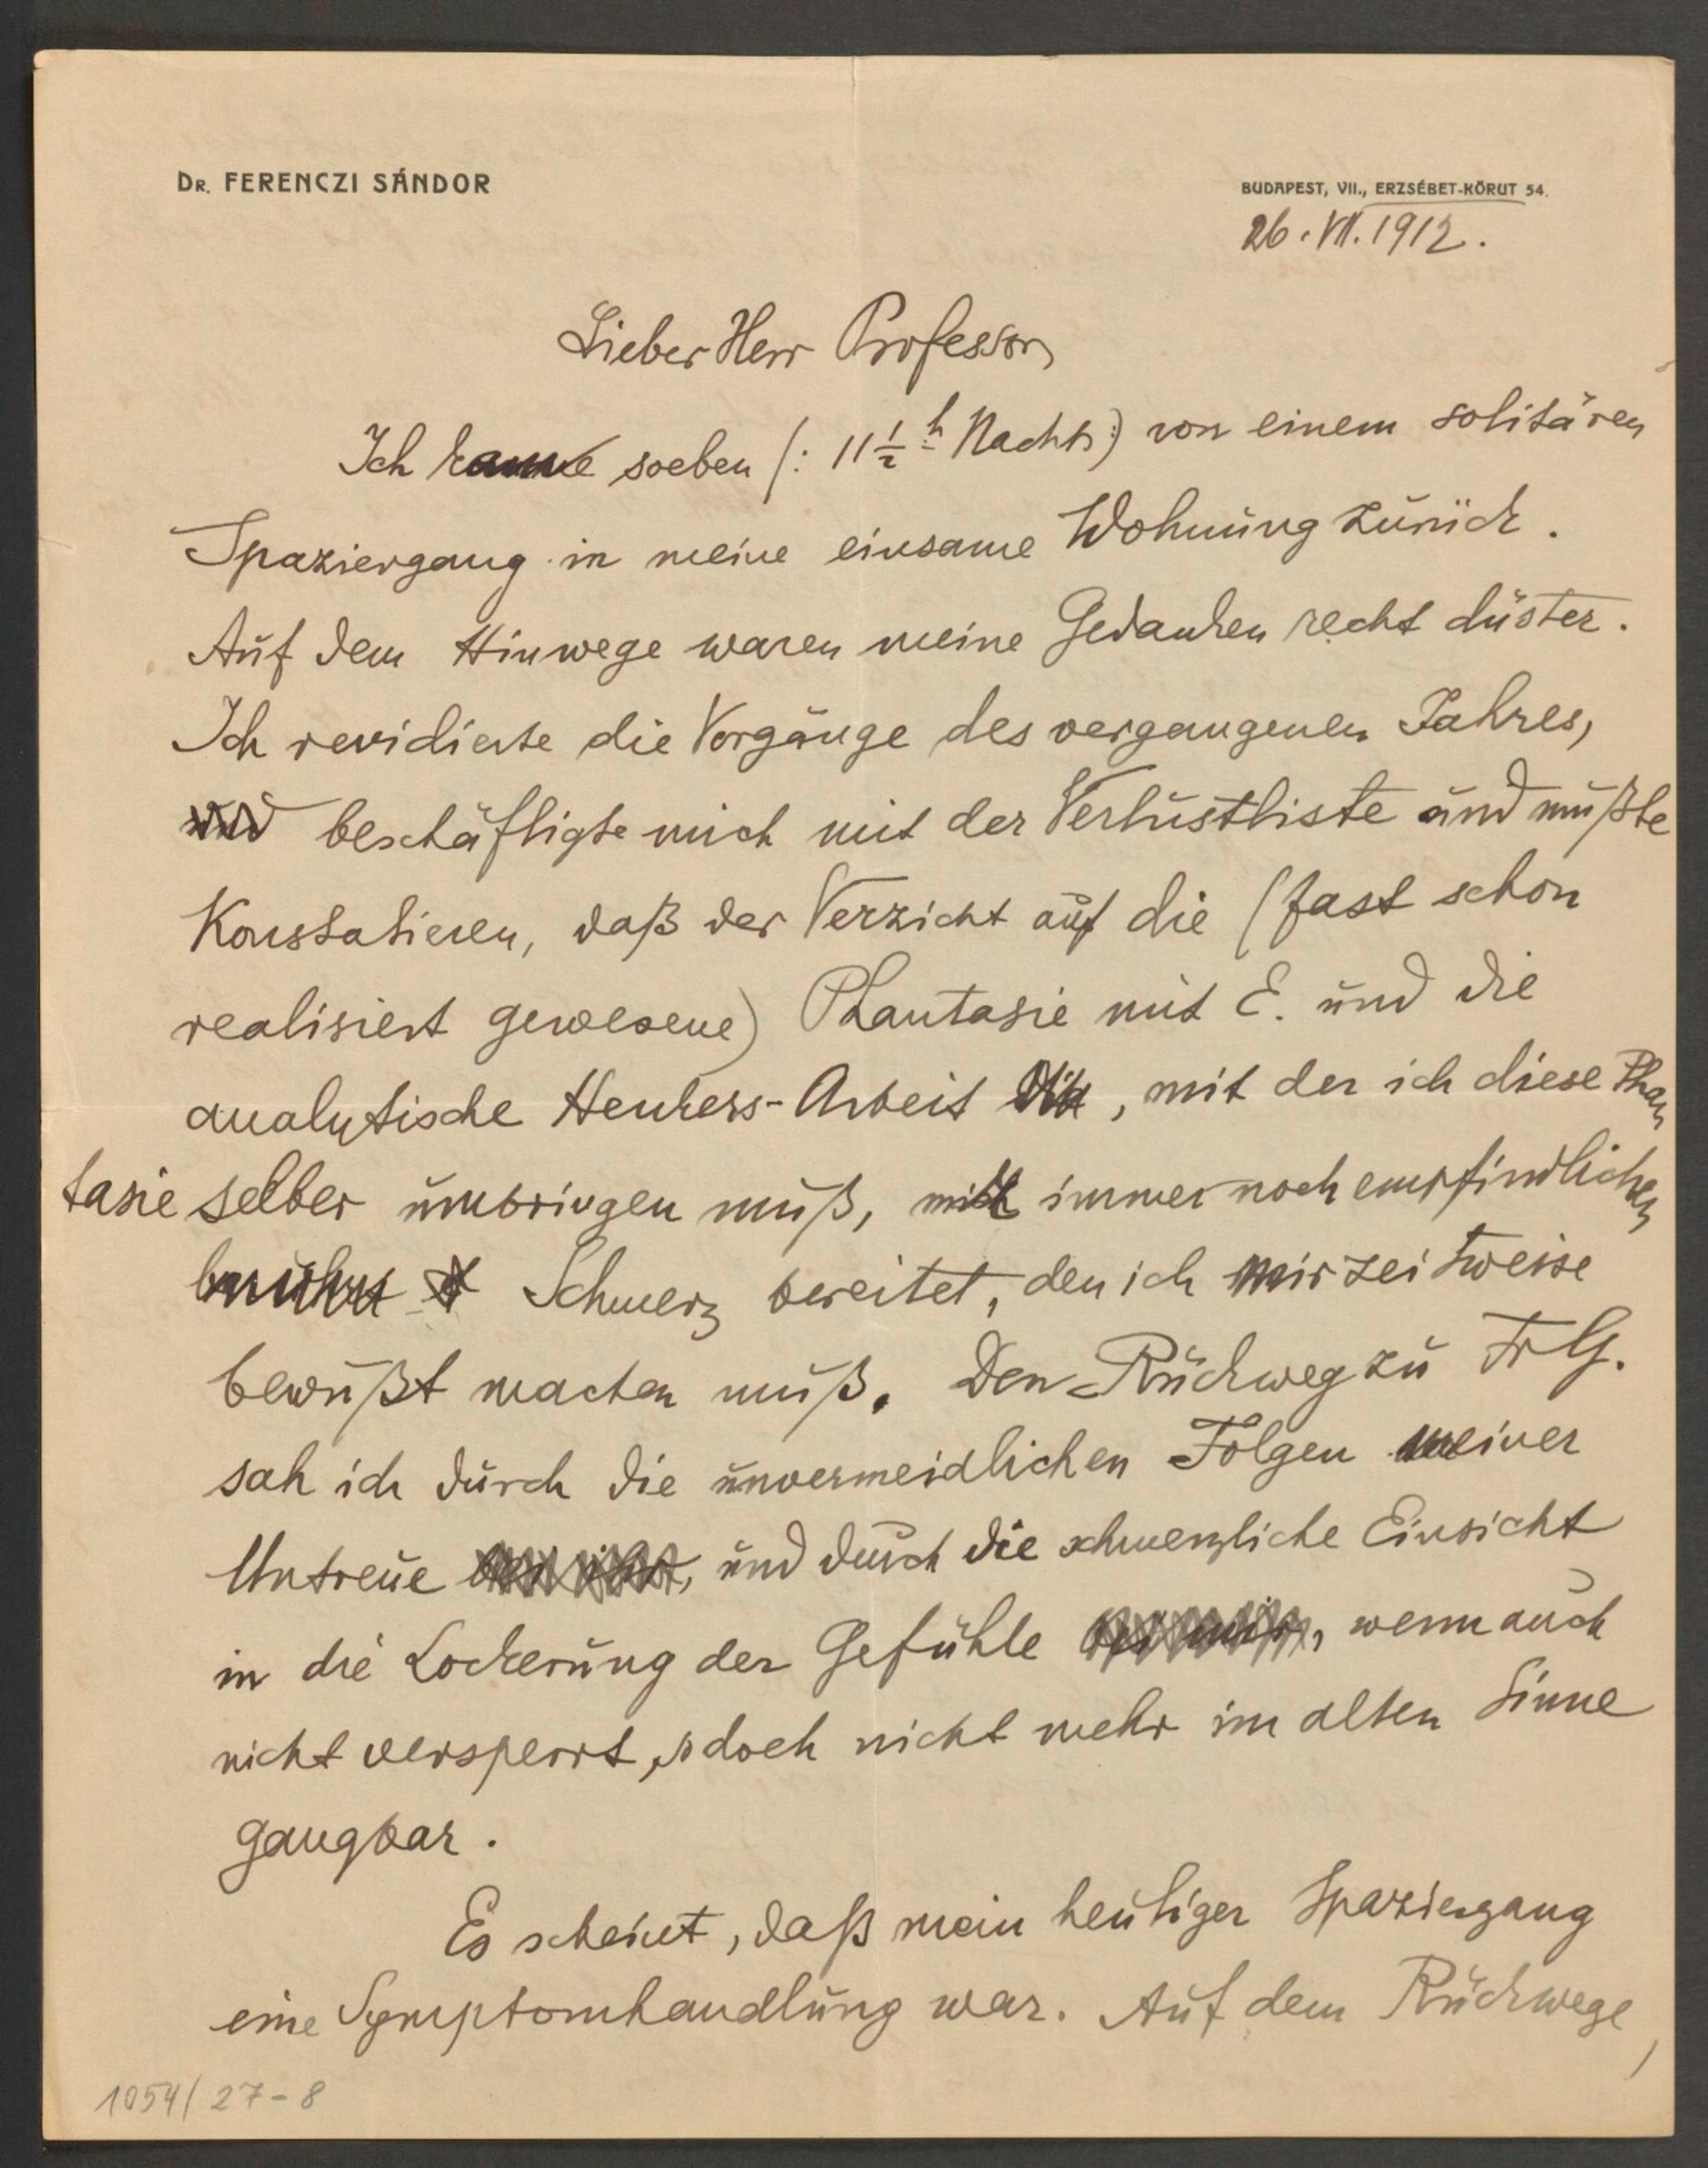 DR. FERENCZI SÁNDOR
BUDAPEST, VII., ERZSÉBET-KÖRUT 54.
26. VII. 1912.
Lieber Herr Professor,
Ich kam soeben (: 11 ½ h Nachts :) von einem solitären
Spaziergang in meine einsame Wohnung zurück.
Auf dem Hinwege waren meine Gedanken recht düster.
Ich revidierte die Vorgänge des vergangenen Jahres,
beschäftigte mich mit der Verlustliste und mußte
Konstatieren, daß der Verzicht auf die (fast schon
realisiert gewesene) Phantasie mit E. und die
analytische Henkers-Arbeit, mit der ich diese Phan
tasie selber umbringen muß, mir immer noch empfindlichen
Schmerz bereitet, den ich mir zeitweise
bewußt machen muß. Den Rückweg zu Fr G.
sah ich durch die unvermeidlichen Folgen meiner
Untreue, und durch die schmerzliche Einsicht
in die Lockerung der Gefühle, wenn auch
nicht versperrt, so doch nicht mehr im alten Sinne
gangbar.
Es scheint, daß mein heutiger Spaziergang
eine Symptomhandlung war. Auf dem Rückwege,
1054/27-8